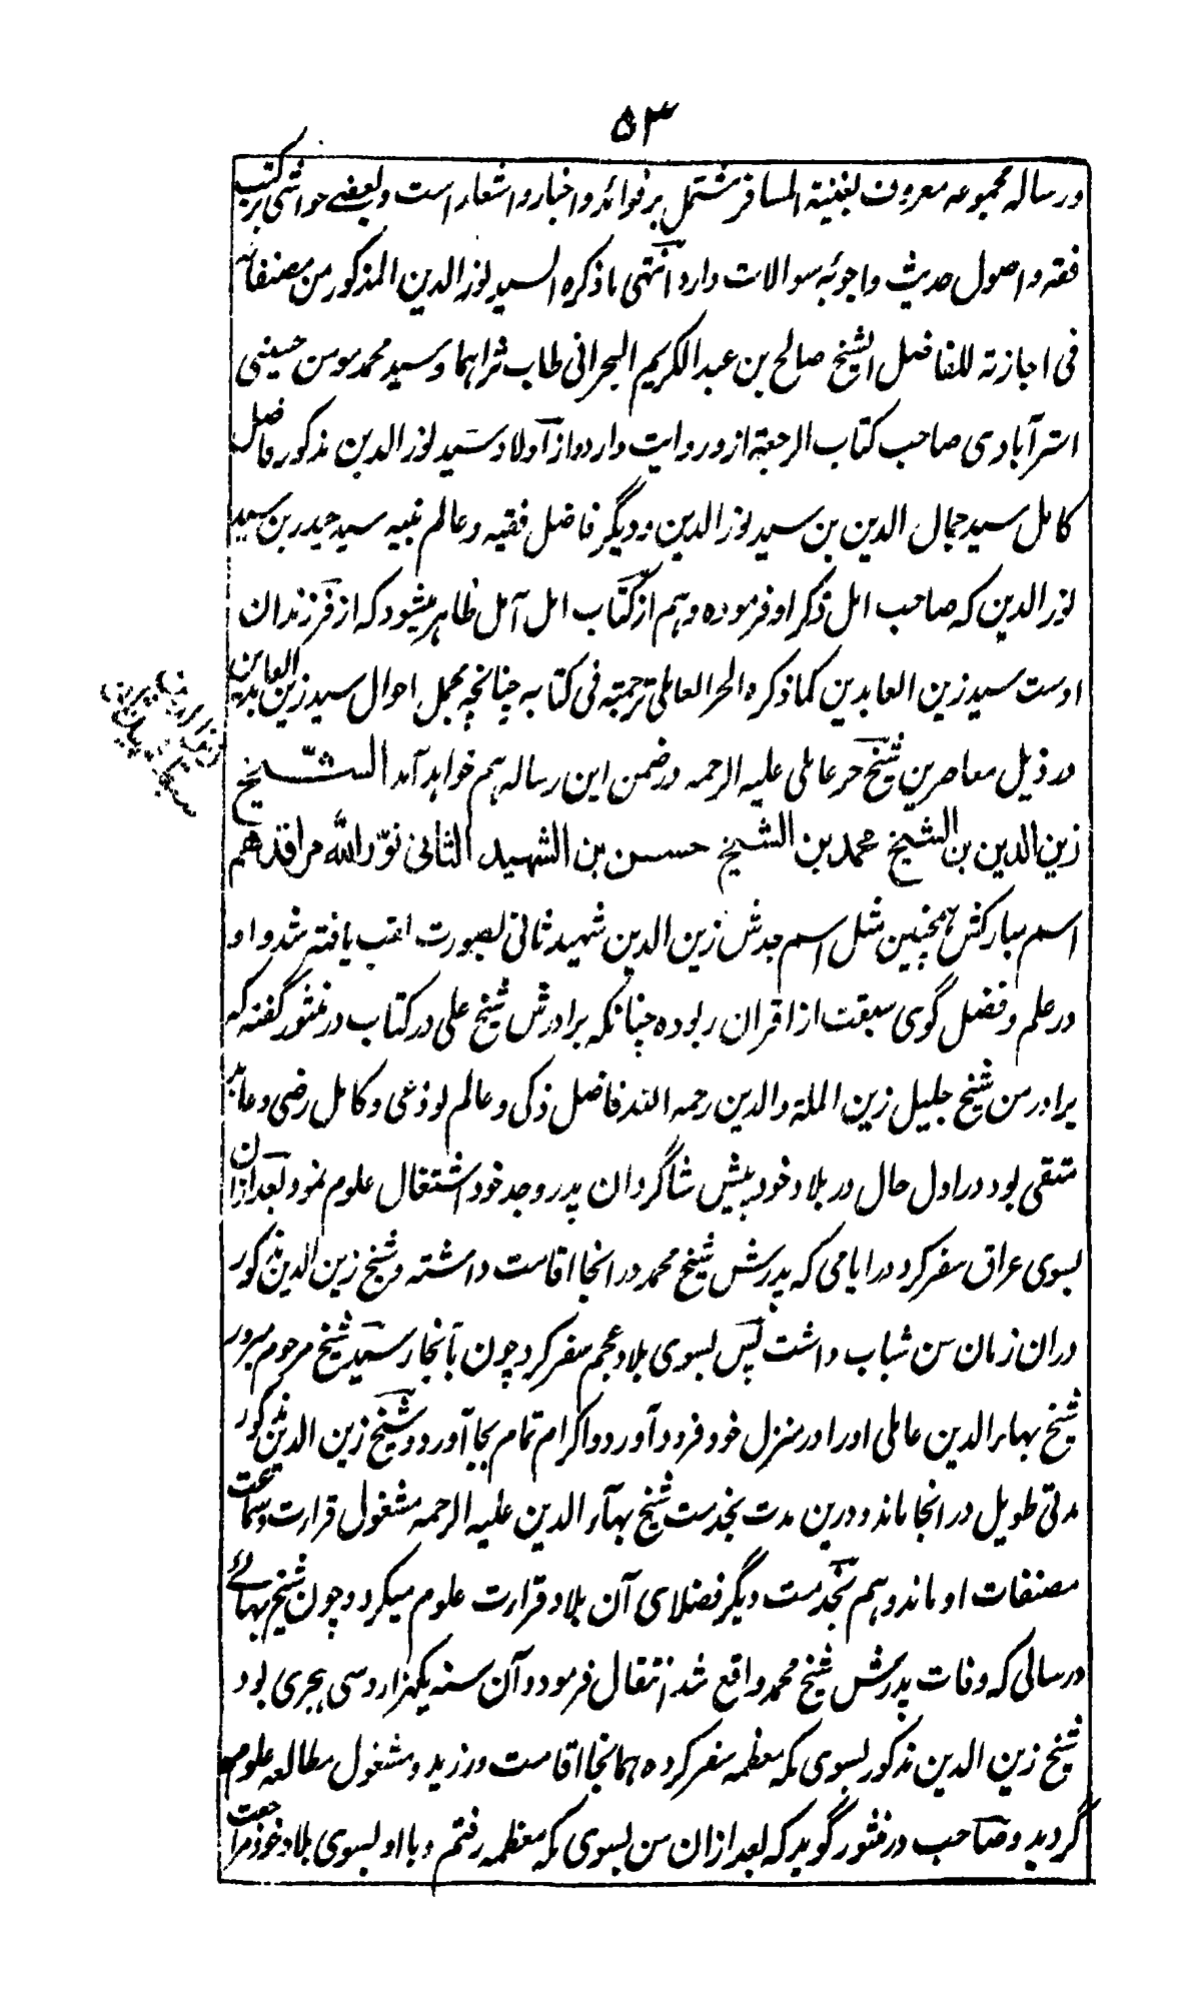 ۵۳
ورساله مجموعه معروف بغنیة المسافر مشتمل بر فوائد و اخبار و اشعار است و بعضے حواشی بر کتب
فقه و اصول حدیث واجوبه سوالات دارد انتهی ما ذکره السید نور الدین المذکور من مصنفاته
فی اجازته للفاضل الشیخ صالح بن عبد الکریم البحرانی طاب ثراهما و سید محمد مومن حسینی
استرآبادی صاحب کتاب الرجعة ازو روایت دارد و از اولاد سید نور الدین مذکور فاضل
کامل سید جمال الدین بن سید نور الدین و دیگر فاضل فقیه و عالم نبیه سید حیدر بن سید
نور الدین که صاحب امل ذکر او فرموده و هم از کتاب امل آمل ظاهر میشود که از فرزندان
اوست سید زین العابدین کما ذکره الحر العاملی ترجمته فی کتابه چنانچه مجمل احوال سید زین العابدین
در ذیل معاصرین شیخ حر عاملی علیه الرحمه در ضمن این رساله هم خواهد آمد الشیخ
زین الدین بن الشیخ محمد بن الشیخ حسن بن الشهید الثانی نوّر الله مراقدهم
اسم مبارکش همچنین مثل اسم جدش زین الدین شهید ثانی بصورت لقب یافته شد و او
در علم و فضل گوی سبقت از اقران ربوده چنانکه برادرش شیخ علی در کتاب در منثور گفته که
برادر من شیخ جلیل زین الملة والدین رحمه الله فاضل ذکی و عالم لوذعی و کامل رضی و عابد
متقی بود در اول حال در بلاد خود پیش شاگردان پدر و جد خود اشتغال علوم نمود بعد ازان
بسوی عراق سفر کرد در ایامی که پدرش شیخ محمد در انجا اقامت داشته و شیخ زین الدین مذکور
دران زمان سن شباب داشت پس بسوی بلاد عجم سفر کرد چون بآنجا رسید شیخ مرحوم مبرور
شیخ بهاء الدین عاملی اورا در منزل خود فرود آورد و اکرام تمام بجا آورد و شیخ زین الدین مذکور
مدتی طویل در انجا ماند و درین مدت بخدمت شیخ بهآء الدین علیه الرحمه مشغول قراءت و سماعت
مصنفات او ماند و هم بخدمت دیگر فضلای آن بلاد قراءت علوم میکرد و چون شیخ بهائے
در سالی که وفات پدرش شیخ محمد واقع شد انتقال فرمود و آن سنه یکهزار و سی هجری بود
شیخ زین الدین مذکور بسوی مکه معظمه سفر کرده همانجا اقامت ورزید و مشغول مطالعه علوم
گردید و صاحب در منثور گوید که بعد ازان من بسوی مکه معظمه رفتم و با او بسوی بلاد خود مراجعت